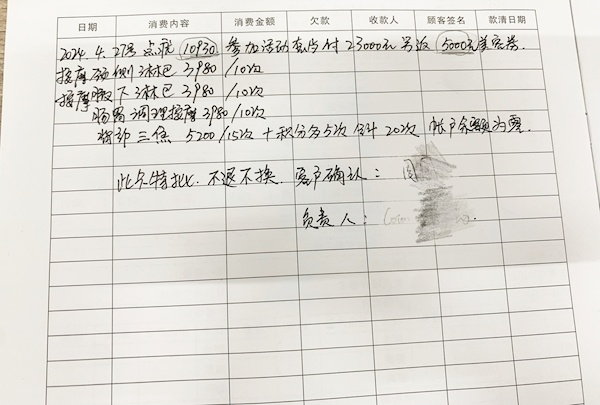 日期 消费内容 消费金额 欠款 收款人 顾客签名 款清日期
2024.4.27号 点痣 10930 参加活动 支付 23000元 另返 5000元
按摩 颈侧 淋巴 3980 /10次
按摩 腋下 淋巴 3980 /10次
肠胃调理按摩 3980 /10次
三焦 5200 /15次 + 积分多5次 合计 20次 帐户余额为零.
此点特批. 不退不换. 客户确认: 周
负责人: